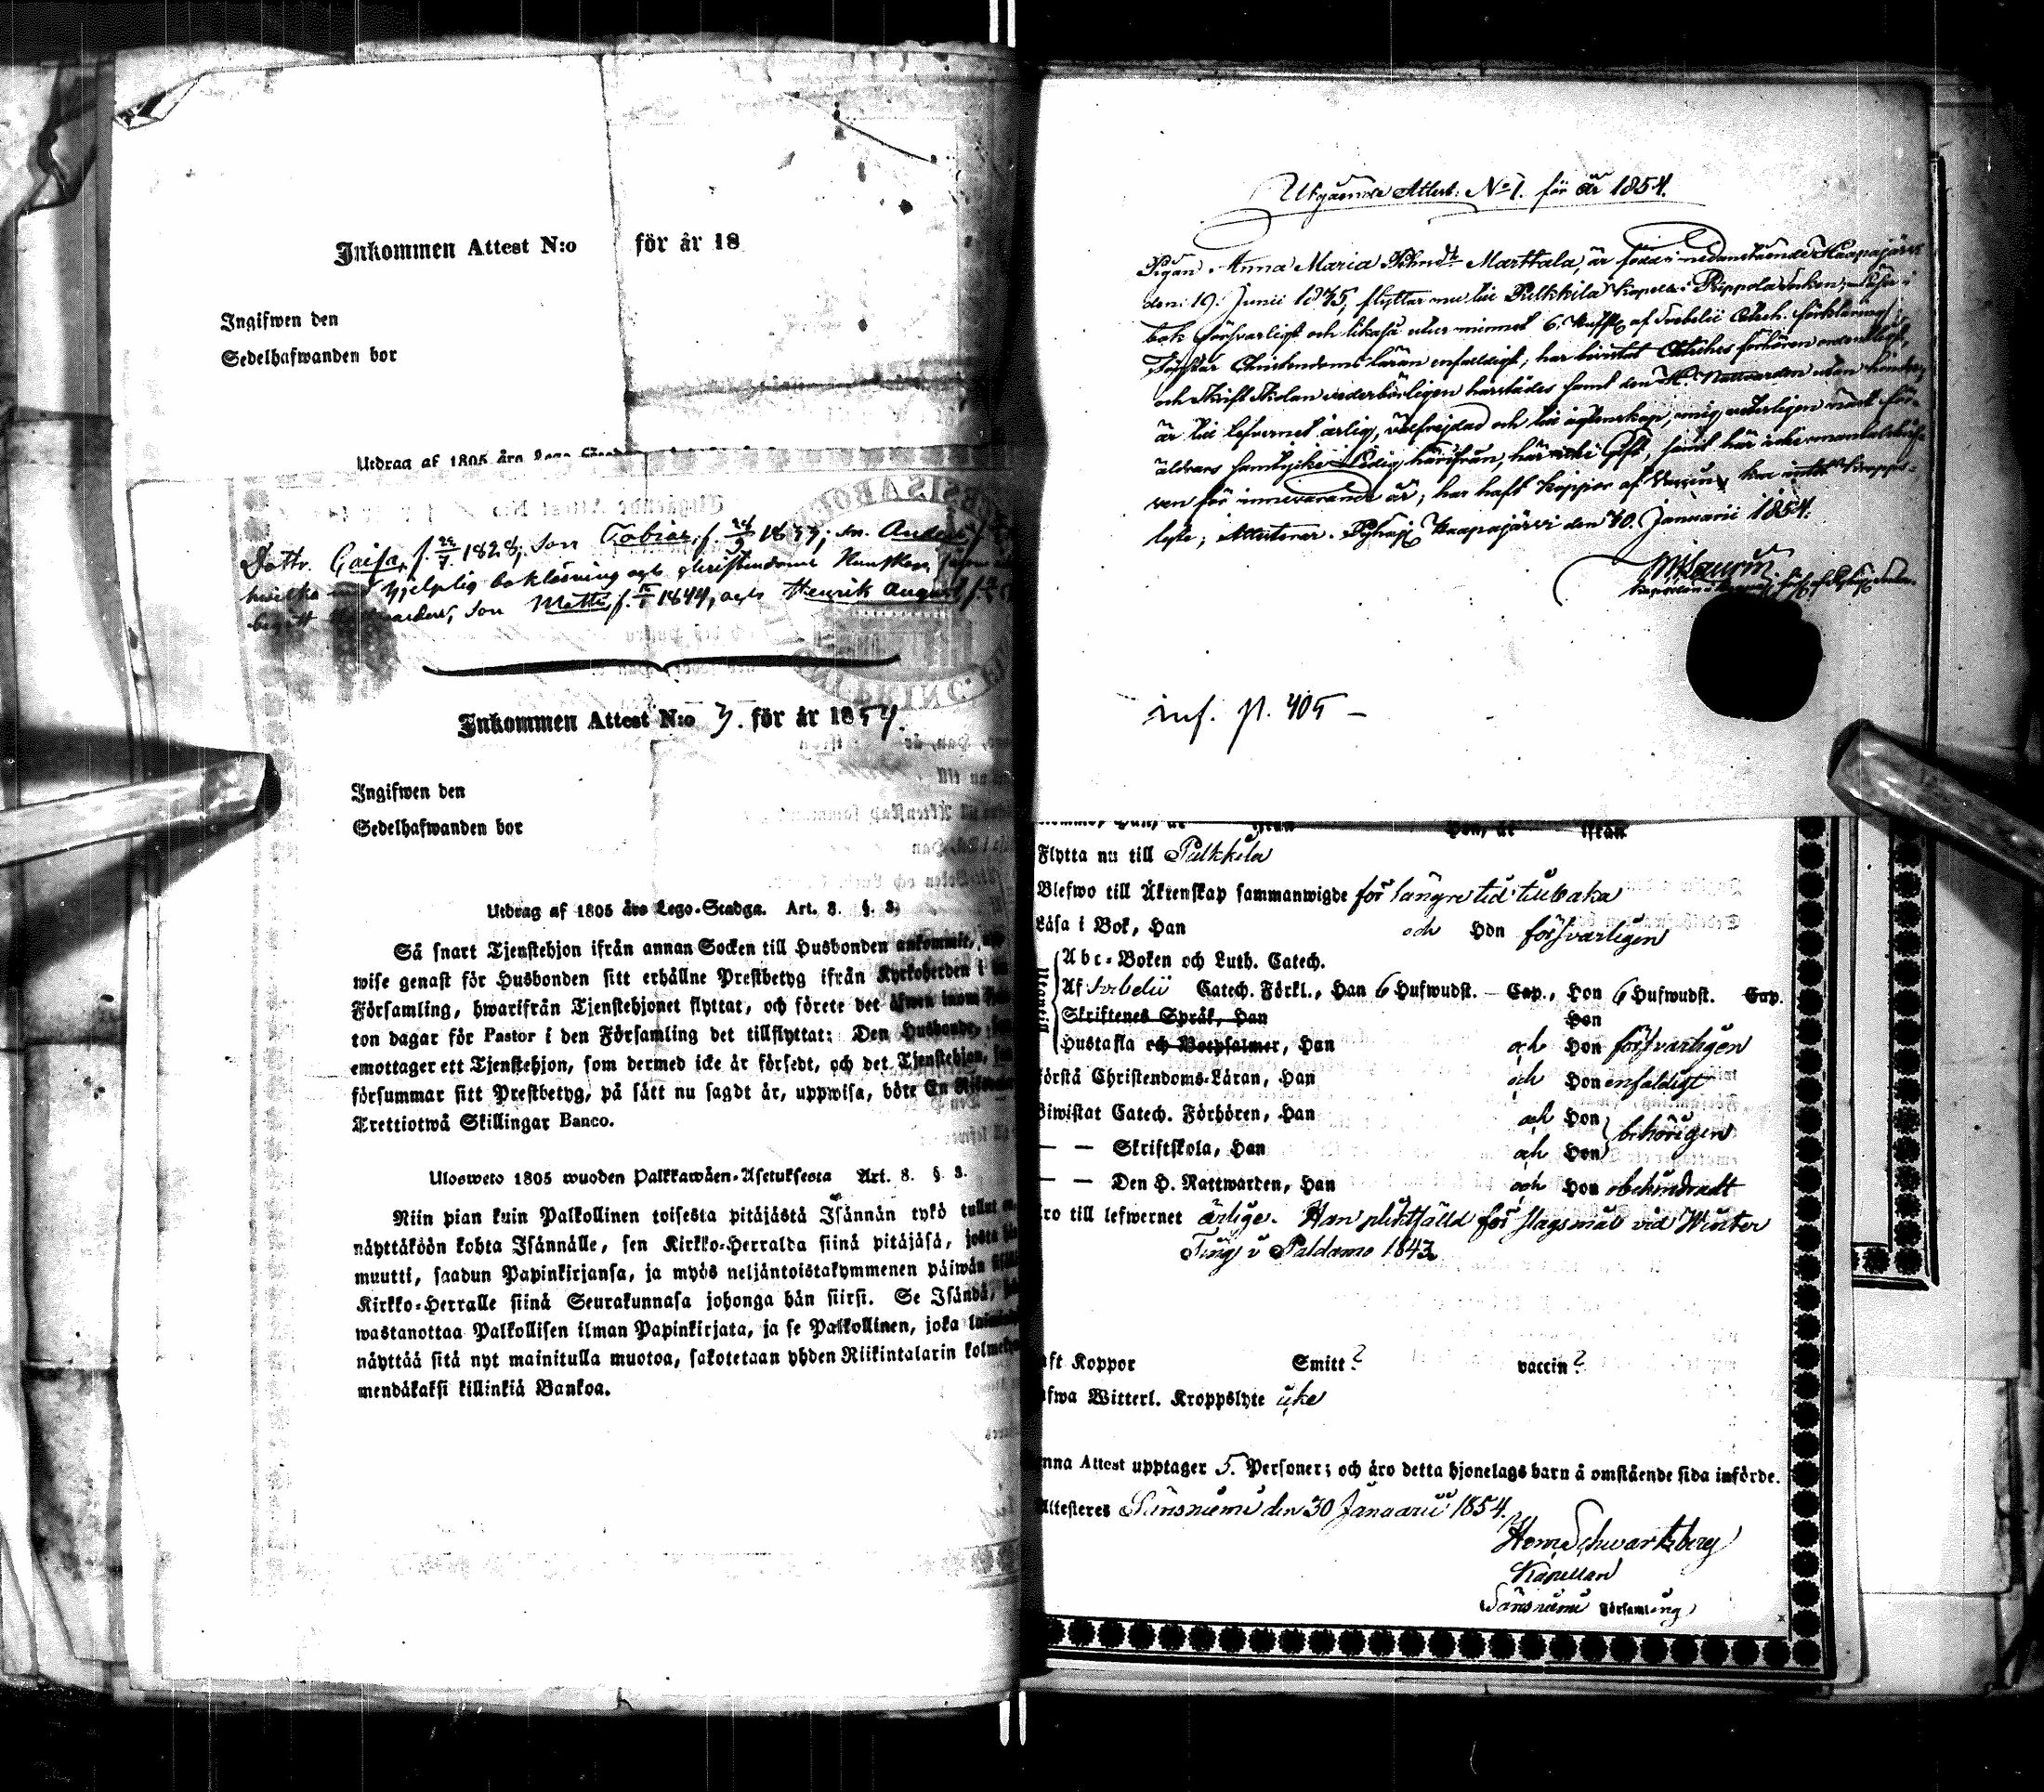 Inkommen Attest N:o för år 18
Ingifwen den
Sedelhafwanden bor
Utdrag af 1805 års Lego
Dottr. Caisa, f. 24/7 1828, Son Tobias, f. 1833; Sn. Anders
hvilka hjelplig bokläsning och christendoms Kunskap
begått Nattvarden, Son Matts f. 1844, och Henrik August
Inkommen Attest N:o 3. för år 1854.
Ingifwen den
Sedelhafwanden bor
Utdrag af 1805 års Lego-Stadga. Art. 8. §. 3.
Så snart Tjenstehjon ifrån annan Socken till Husbonden ankommit,
wise genast för Husbonden sitt erhållne Prestbetyg ifrån Kyrkoherden i
Församling, hwarifrån Tjenstehjonet flyttat, och förete det äfwen inom
ton dagar för Pastor i den Församling det tillflyttat: Den Husbonde,
emottager ett Tjenstehjon, som dermed icke är försedt, och det Tjenstehjon,
försummar sitt Prestbetyg, på sätt nu sagdt är, uppwisa, böte En
Trettiotwå Skillingar Banco.
Ulosweto 1805 wuoden Palkkawäen-Asetuksesta Art. 8. §. 3.
Niin pian kuin Palkollinen toisesta pitäjästä Isännän tykö tullut
näyttäköön kohta Isännälle, sen Kirkko-Herralda siinä pitäjäsä, josta
muutti, saadun Papinkirjansa, ja myös neljäntoistakymmenen päiwän
Kirkko-Herralle siinä Seurakunnasa johonga hän siirsi. Se Isändä,
wastanottaa Palkollisen ilman Papinkirjata, ja se Palkollinen, joka
näyttää sitä nyt mainitulla muotoa, sakotetaan yhden Riikintalarin
mendäkaksi killinkiä Bankoa.
Utgående Attest: No 1. för år 1854.
Pigan Anna Maria Marttala, är född i nedanstående Haapajärvi
den 19. Junii 1835, flyttar nu till Pulkkila kapell i Pippola Socken; läser i
bok försvarligt och likaså utur minnet 6. Hufst. af Svebelii Catech. förklaring;
förstår Christendoms läran enfaldigt, har bivistat Catechis förhören ordentligt,
och Skrift Skolan vederbörligen härstädes samt den H. Nattvarden utan hinder,
är till lefvernet ärlig, välfrejdad och till ägtenskap, mig veterligen näst för-
äldrars samtycke Ledig härifrån, här icke Gift, samt här icke mantalsskrif-
ven för innevarande år; har haft koppor af Vaccin, har intet kropps-
lyte; Attesterar. Pyhäj. Haapajärvi den 30. Januarii 1854.
inf. p. 405 —
Flytta nu till Pulkkila
Blefwo till Äktenskap sammanwigde för längre tid tillbaka
Läsa i Bok, Han och Hon försvarligen
Utantill
Abc-Boken och Luth. Catech.
Af Svebelii Catech. Förkl., Han 6 Hufwudst. — Cap., Hon 6 Hufwudst. Cap.
Skriftenes Språk, Han Hon
Hustafla och Botpsalmer, Han och Hon försvarligen
örstå Christendoms-Läran, Han och Hon enfaldigt
Biwistat Catech. Förhören, Han och Hon
— — Skriftskola, Han och Hon behörigen
— — Den H. Nattwarden, Han och Hon obehindradt
ro till lefwernet ärlige. Han pliktfälld för slagsmål vid Winter
Ting i Paldamo 1843.
aft Koppor Smitt? vaccin?
afwa Witterl. Kroppslyte icke
nna Attest upptager 5. Personer; och äro detta hjonelags barn å omstående sida införde.
Attesteres Säräsniemi den 30 Januarii 1854.
Henr. Schwartzberg
Kapellan
Säräsniemi Församling